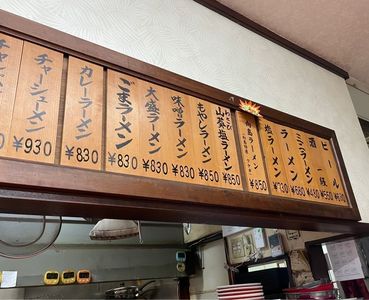 ビール ¥610
酒 一級 ¥550
ミニラーメン ¥480
ラーメン ¥680
塩ラーメン ¥730
ラーメン ¥850
わさび
山菜塩ラーメン ¥850
もやしラーメン ¥850
味噌ラーメン ¥830
大盛ラーメン ¥830
ごまラーメン ¥830
カレーラーメン ¥830
チャーシューメン ¥930